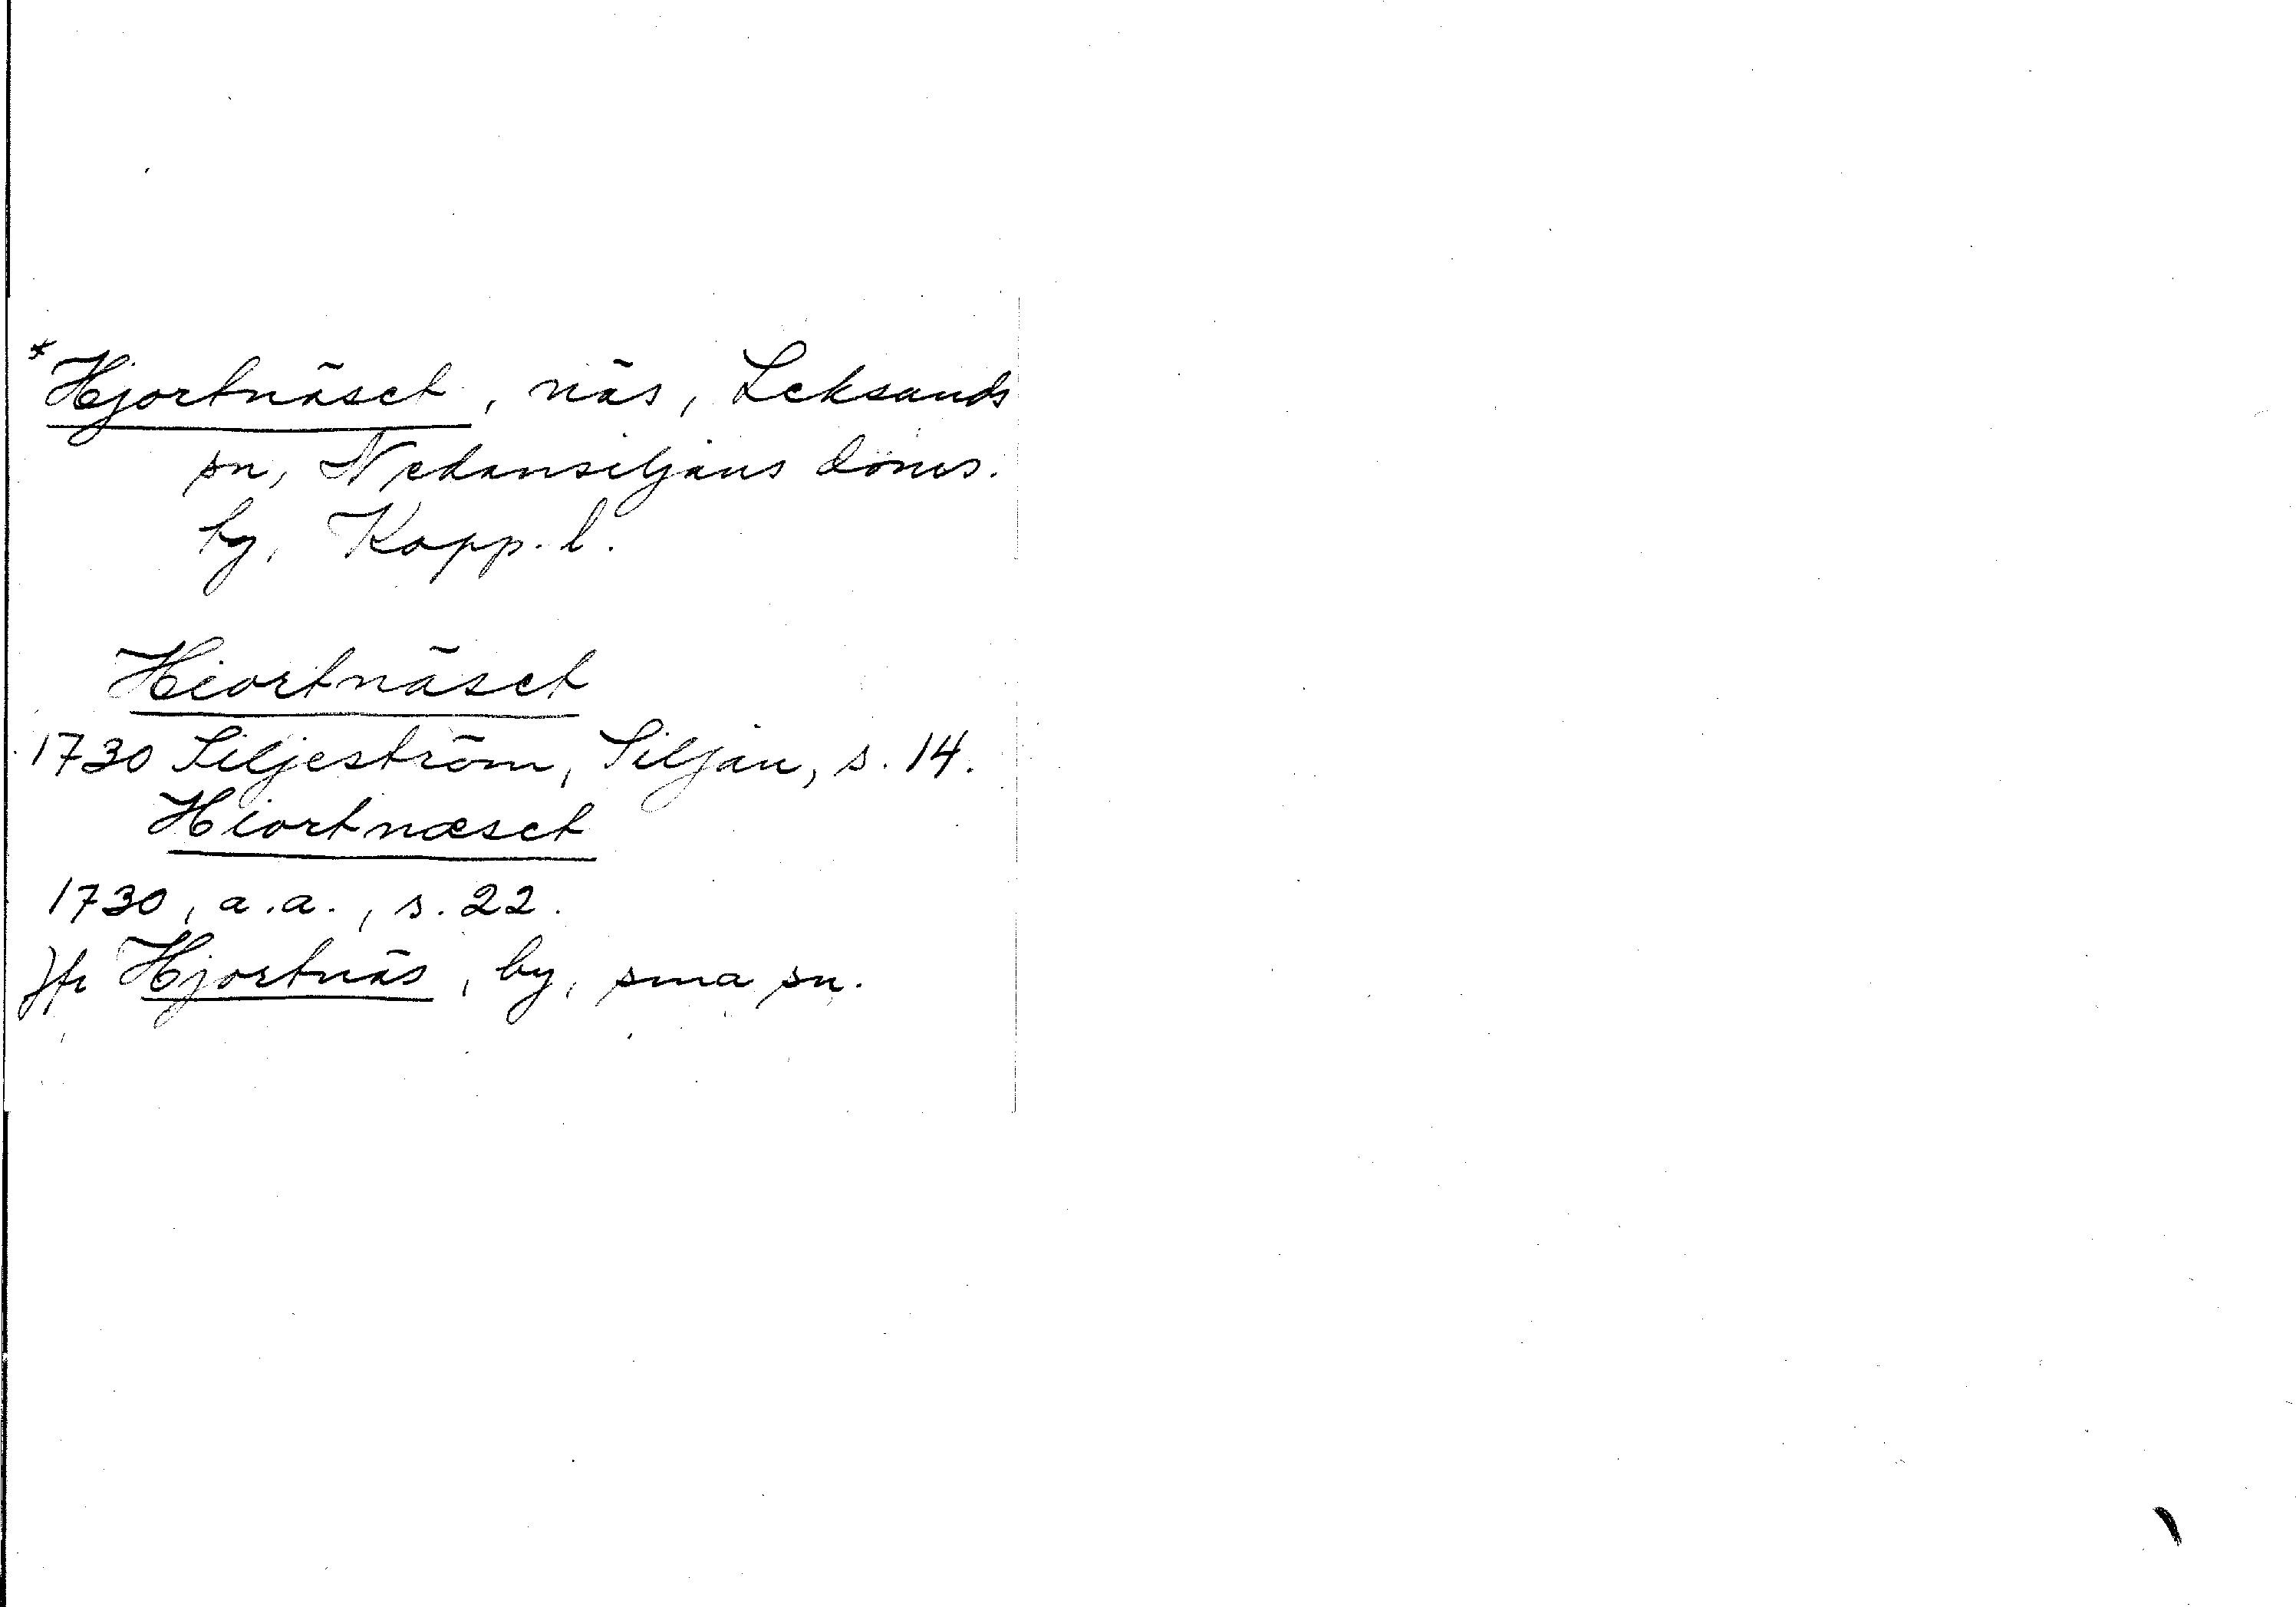 *Hjortnäset, näs, Leksands
sn, Nedansiljans döms.
tg, Kopp. l.
Hiortnäset
1730 Siljeström, Siljan, s. 14.
Hiortnæset
1730, a.a., s. 22.
Jfr Hjortnäs, by, sma sn.